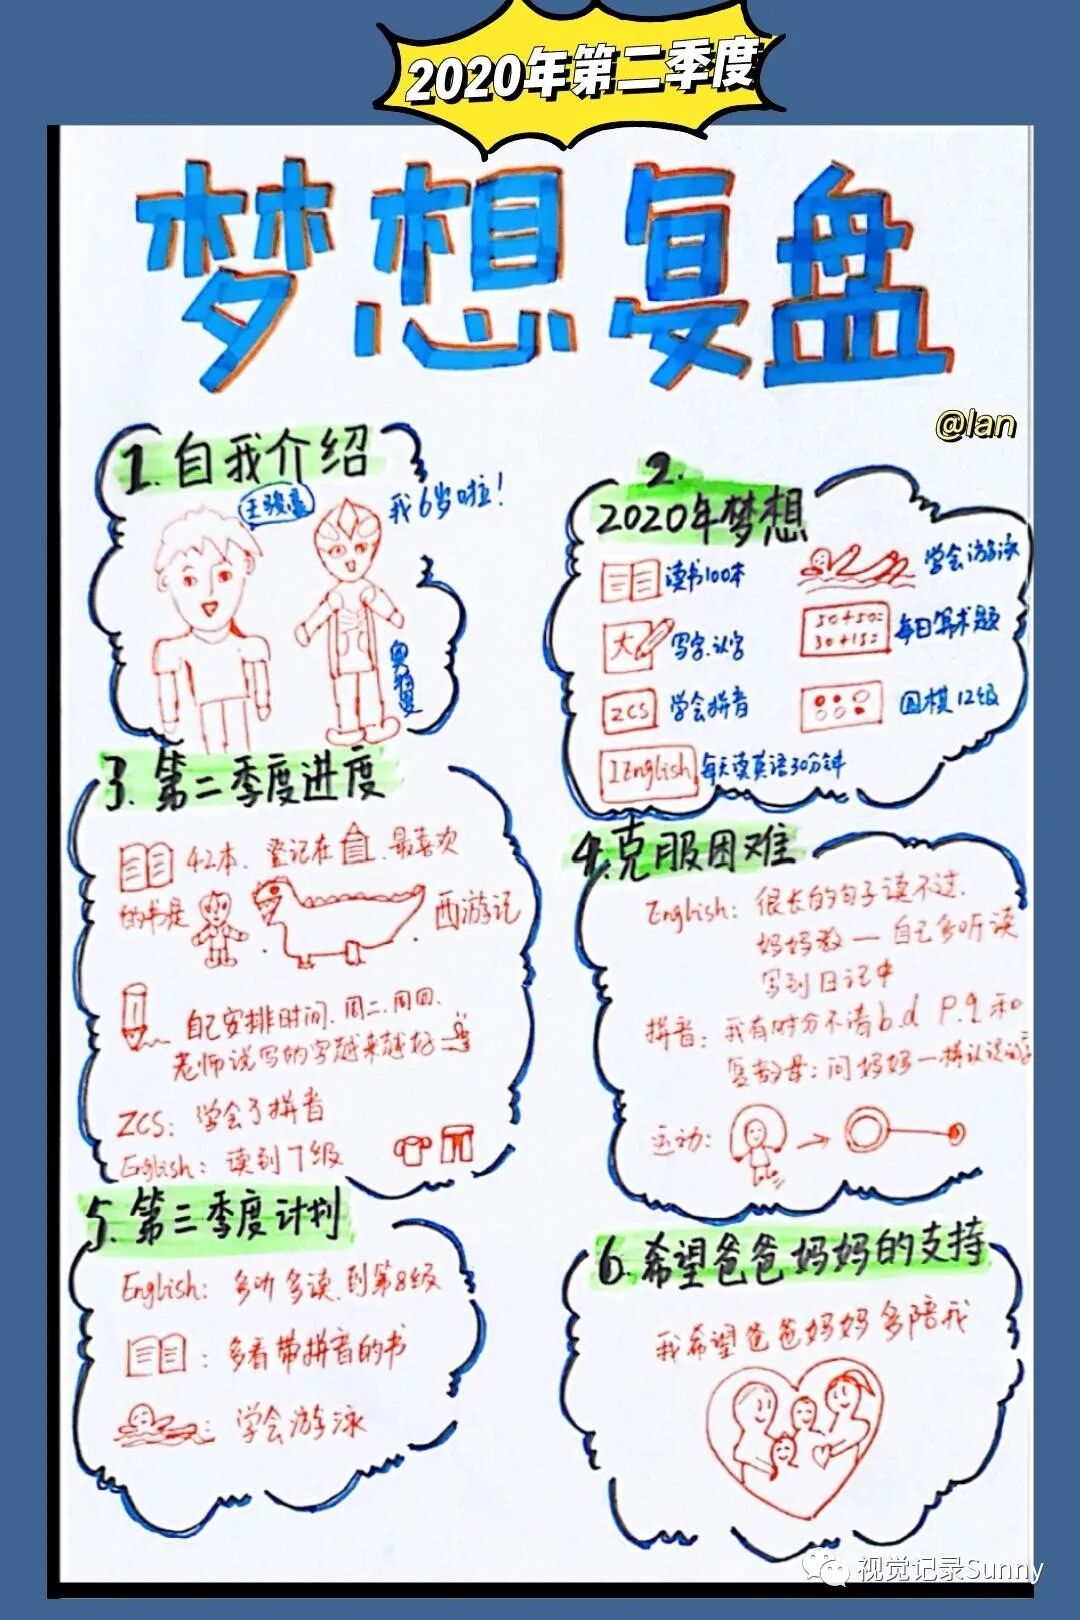 2020年第二季度
梦想复盘
@lan
1.自我介绍
王骏熹
我6岁啦!
奥特曼
2.
2020年梦想
读书100本
学会游泳
大
写字.认字
50+50=
30+15=
每日算术题
ZCS
学会拼音
围棋12级
IEnglish
每天读英语30分钟
3.第二季度进度
42本.登记在 .最喜欢
的书是 . 西游记
自己安排时间.周二.周四.
老师说写的字越来越好
ZCS:学会了拼音
English:读到7级
4.克服困难
English:很长的句子读不过.
妈妈教一自己多听读
写到日记中
拼音:我有时分不清b.d P.q和
复韵母:问妈妈一样认识的字
运动:
5.第三季度计划
English:多听多读.到第8级
:多看带拼音的书
:学会游泳
6.希望爸爸妈妈的支持
我希望爸爸妈妈多陪我
视觉记录Sunny